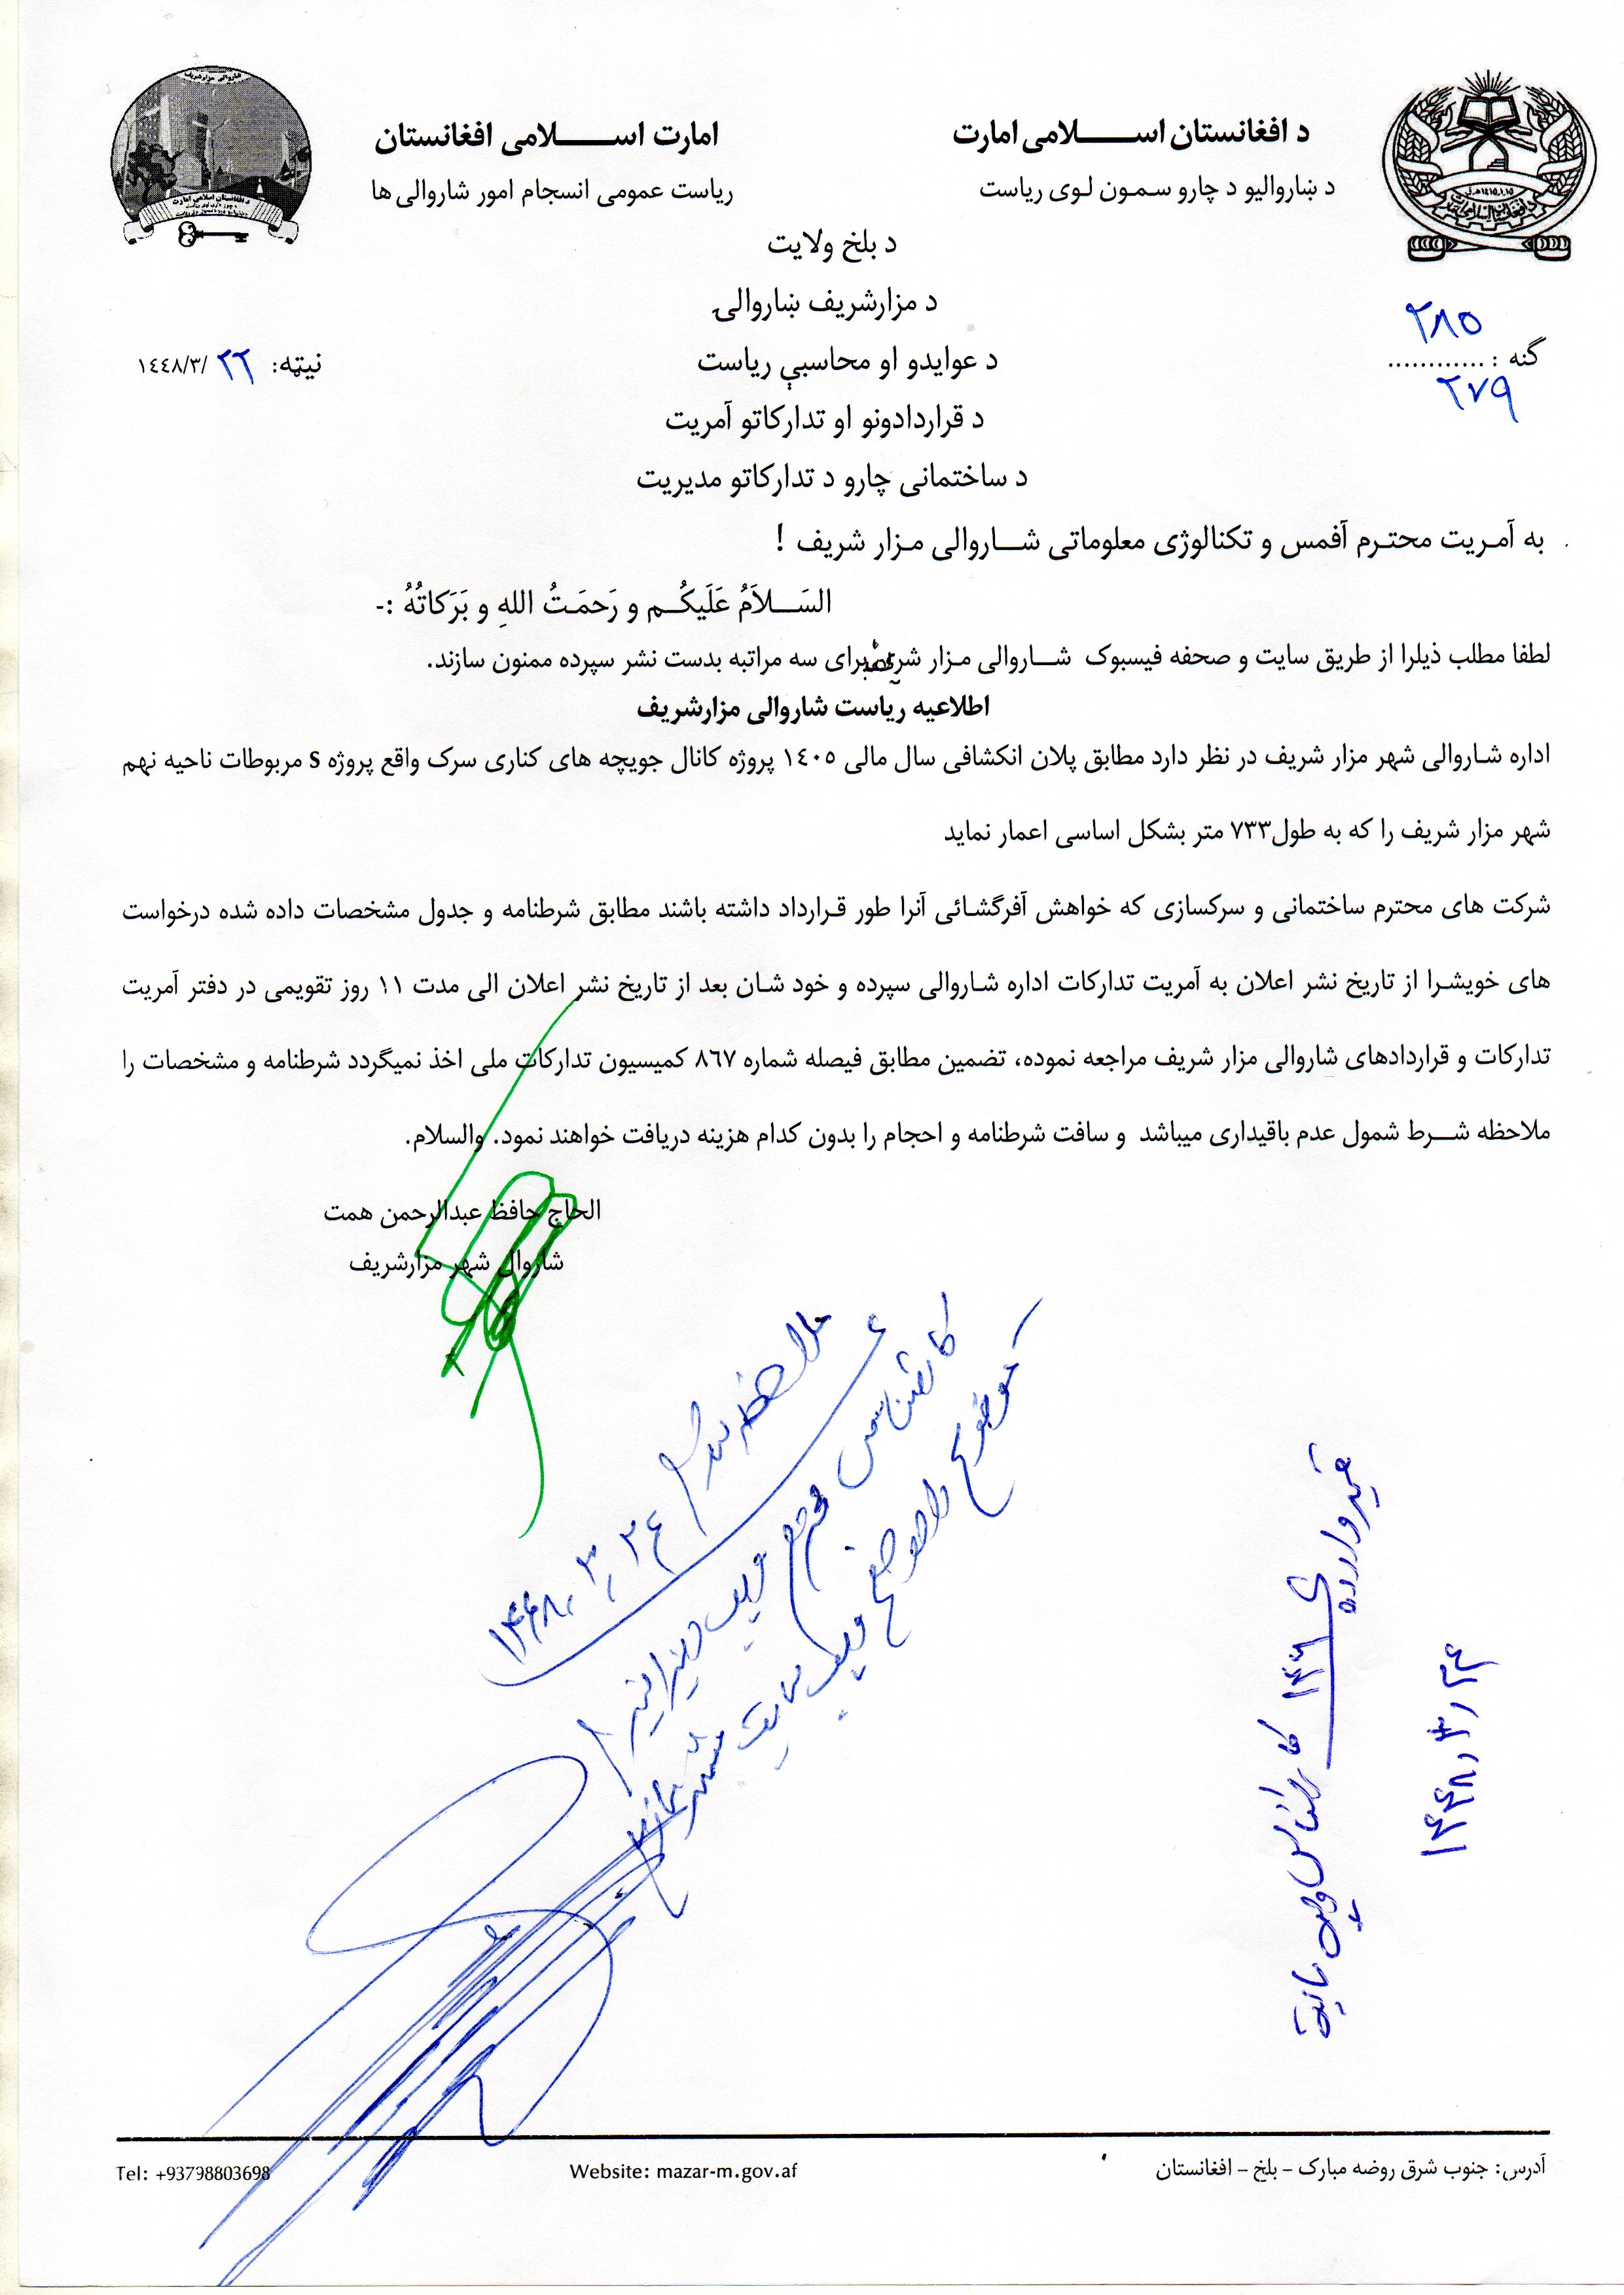 د افغانستان اســـــلامی امارت
امارت اســـــلامی افغانستان
د ښاروالیو د چارو سمـون لـوی ریاست
ریاست عمومی انسجام امور شاروالی ها
د بلخ ولایت
د مزارشریف ښاروالۍ
د عوایدو او محاسبې ریاست
د قراردادونو او تدارکاتو آمریت
د ساختمانی چارو د تدارکاتو مدیریت
٢٨٥
گنه : ............
٢٧٩
نیټه: ٢٢ /١٤٤٨/٣
به آمـریت محتـرم آفمس و تکنالوژی معلوماتی شـــاروالی مـزار شریف !
السَـــلاَمُ عَلَیکُــم و رَحمَـتُ اللهِ و بَرَکاتُهُ :-
لطفا مطلب ذیلرا از طریق سایت و صحفه فیسبوک شـــاروالی مـزار شریف برای سه مراتبه بدست نشر سپرده ممنون سازند.
اطلاعیه ریاست شاروالی مزارشریف
اداره شـاروالی شهر مزار شریف در نظر دارد مطابق پلان انکشافی سال مالی ١٤٠٥ پروژه کانال جویچه های کناری سرک واقع پروژه s مربوطات ناحیه نهم
شهر مزار شریف را که به طول٧٣٣ متر بشکل اساسی اعمار نماید
شرکت های محترم ساختمانی و سرکسازی که خواهش آفرگشـائی آنرا طور قـرارداد داشته باشند مطابق شرطنامه و جدول مشخصات داده شده درخواست
های خویشـرا از تاریخ نشر اعلان به آمریت تدارکات اداره شـاروالی سپرده و خود شـان بعد از تاریخ نشر اعلان الی مدت ١١ روز تقویمی در دفتر آمریت
تدارکات و قراردادهای شاروالی مزار شریف مراجعه نموده، تضمین مطابق فیصله شماره ٨٦٧ کمیسیون تدارکات ملی اخذ نمیگردد شرطنامه و مشخصات را
ملاحظه شـــرط شمول عدم باقیداری میباشد و سافت شرطنامه و احجام را بدون کدام هزینه دریافت خواهند نمود. والسلام.
الحاج حافظ عبدالرحمن همت
شاروال شهر مزارشریف
ملاحظه شد
١٤٤٨/٣/٢٤
موضوع را
ویب سایت نشر
قید وارده
١٤٤٨/٣/٢٤
آدرس: جنوب شرق روضه مبارک – بلخ – افغانستان
Website: mazar-m.gov.af
Tel: +93798803698